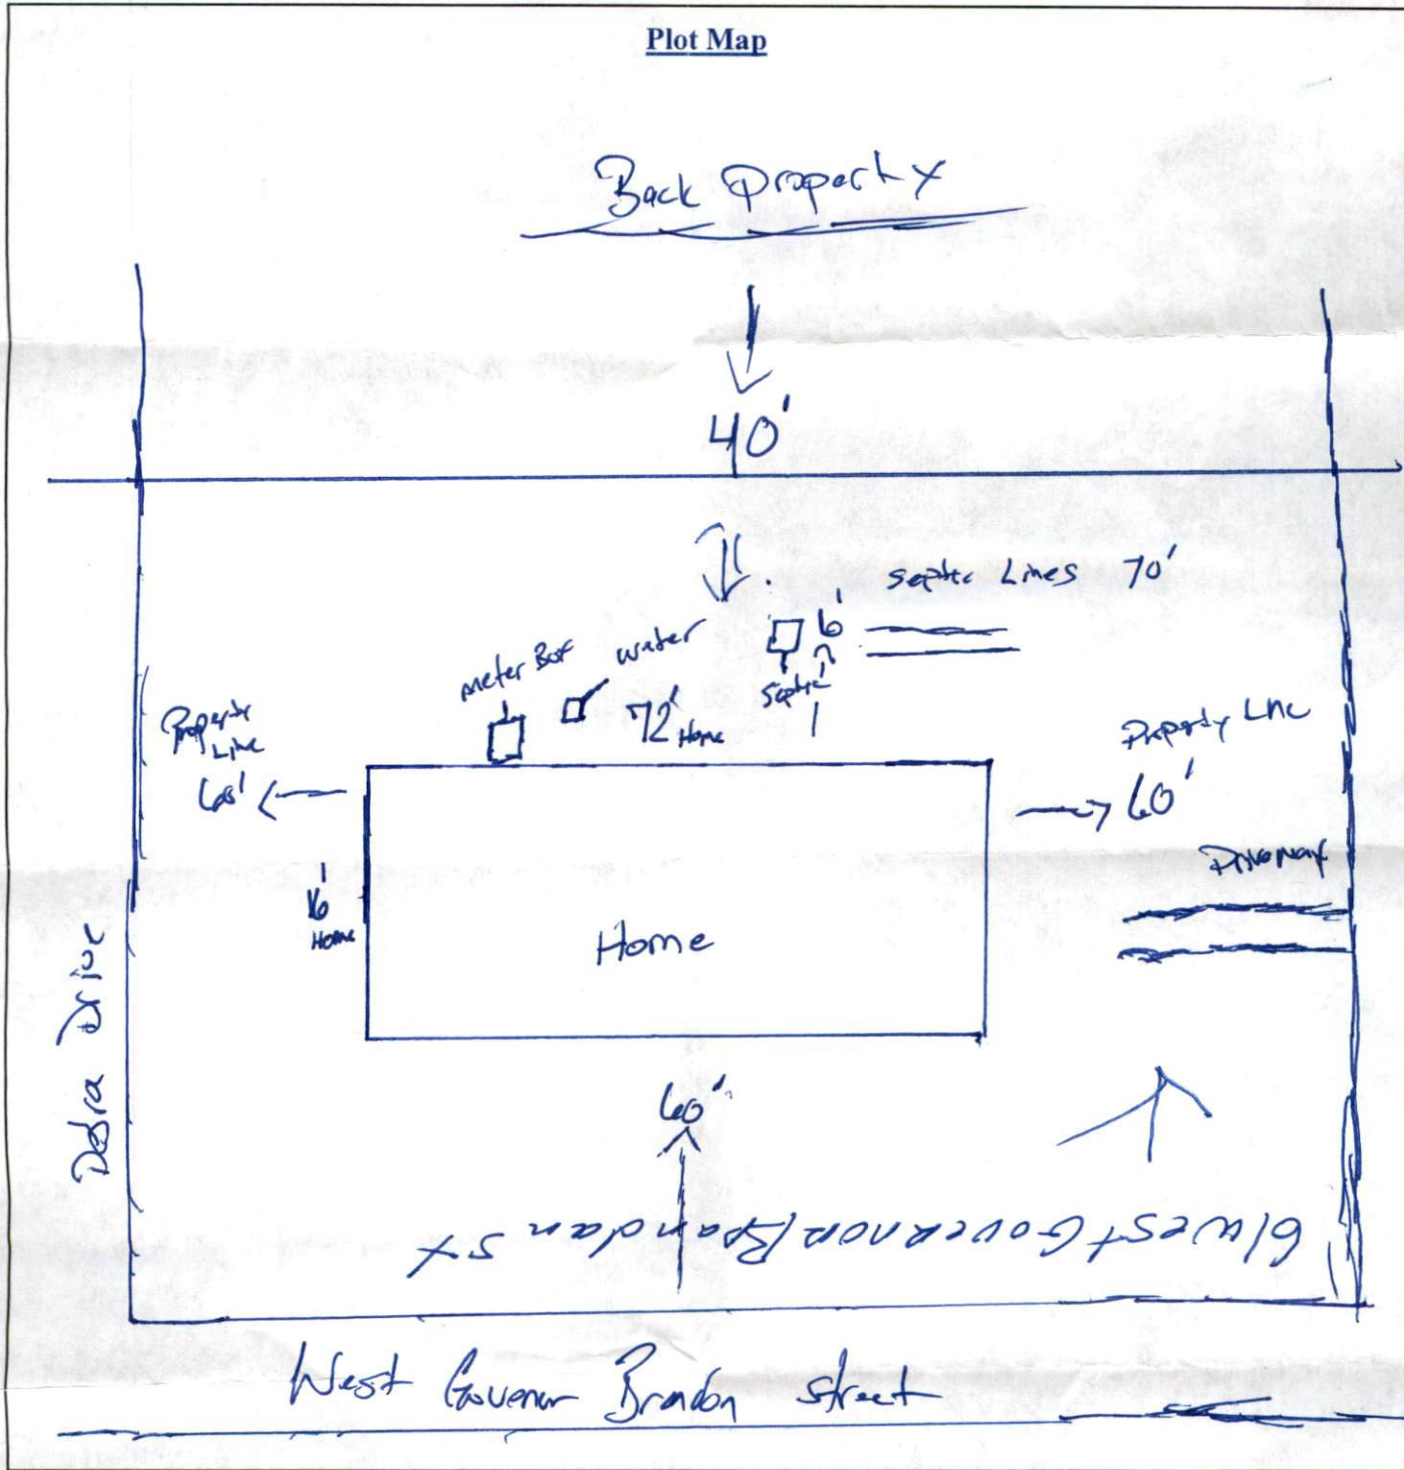 Plot Map
Back Property
40'
septic Lines 70'
meter Box
water
6'
septic
72' Home
Property Line
60'
Property Line
60'
Driveway
16' Home
Home
Debra Drive
60'
61 West Governor Brandan St
West Govenor Brandon street